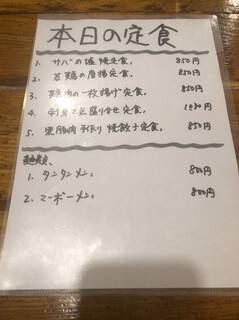 本日の定食
1. サバの塩焼定食。 850円
2. 若鶏の唐揚定食。 850円
3. 鶏肉の一枚揚げ定食。 850円
4. 刺身三点盛り合せ定食。
5. 黒豚肉手作り焼餃子定食。 850円
麺類、
1. タンタンメン。 800円
2. マーボーメン 800円